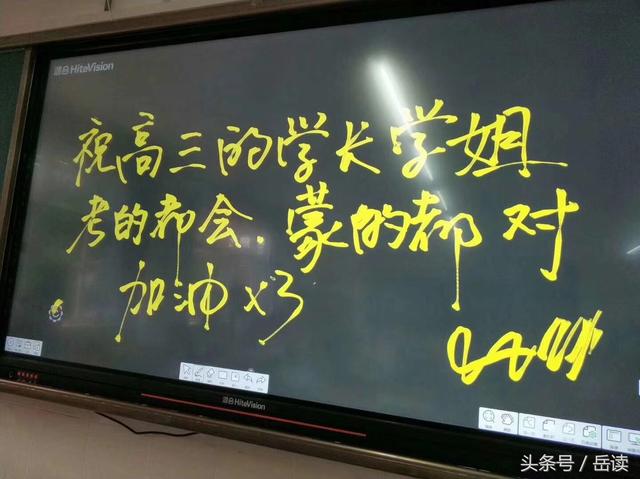 鸿合HiteVision
祝高三的学长学姐
考的都会.蒙的都对
加油x3
鸿合HiteVision
头条号/岳读